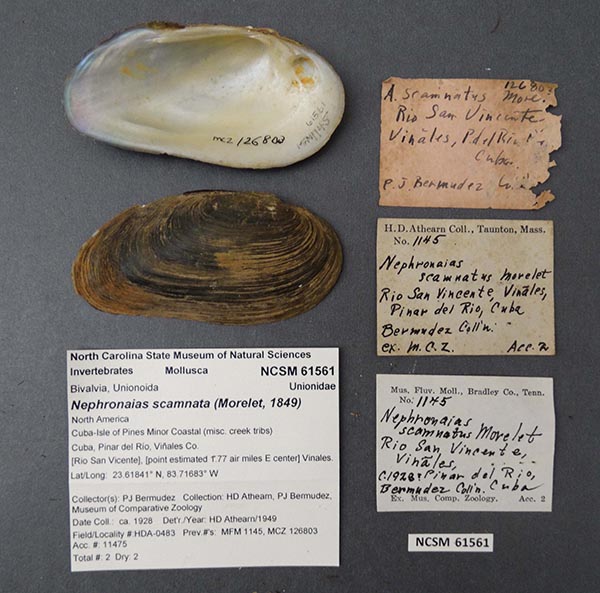 61561
NCSM 1145
mcz 126803
126803
A. scamnatus More.
Rio San Vincente
Viñales, P. del Rio
Cuba.
P. J. Bermudez
H. D. Athearn Coll., Taunton, Mass.
No. 1145
Nephronaias
scamnatus Morelet
Rio San Vincente Viñales,
Pinar del Rio, Cuba
Bermudez Coll'n.
ex. M.C.Z. Acc. 2
Mus. Fluv. Moll., Bradley Co., Tenn.
No. 1145
Nephronaias
scamnatus Morelet
Rio San Vincente,
Viñales,
C.1928: Pinar del Rio,
Bermudez Coll'n. Cuba
Ex. Mus. Comp. Zoology. Acc. 2
NCSM 61561
North Carolina State Museum of Natural Sciences
Invertebrates Mollusca NCSM 61561
Bivalvia, Unionoida Unionidae
Nephronaias scamnata (Morelet, 1849)
North America
Cuba-Isle of Pines Minor Coastal (misc. creek tribs)
Cuba, Pinar del Río, Viñales Co.
[Rio San Vicente], [point estimated 1.77 air miles E center] Vinales.
Lat/Long: 23.61841° N, 83.71683° W
Collector(s): PJ Bermudez Collection: HD Athearn, PJ Bermudez,
Museum of Comparative Zoology
Date Coll.: ca. 1928 Det'r./Year: HD Athearn/1949
Field/Locality #:HDA-0483 Prev.#'s: MFM 1145, MCZ 126803
Acc. #: 11475
Total #: 2 Dry: 2